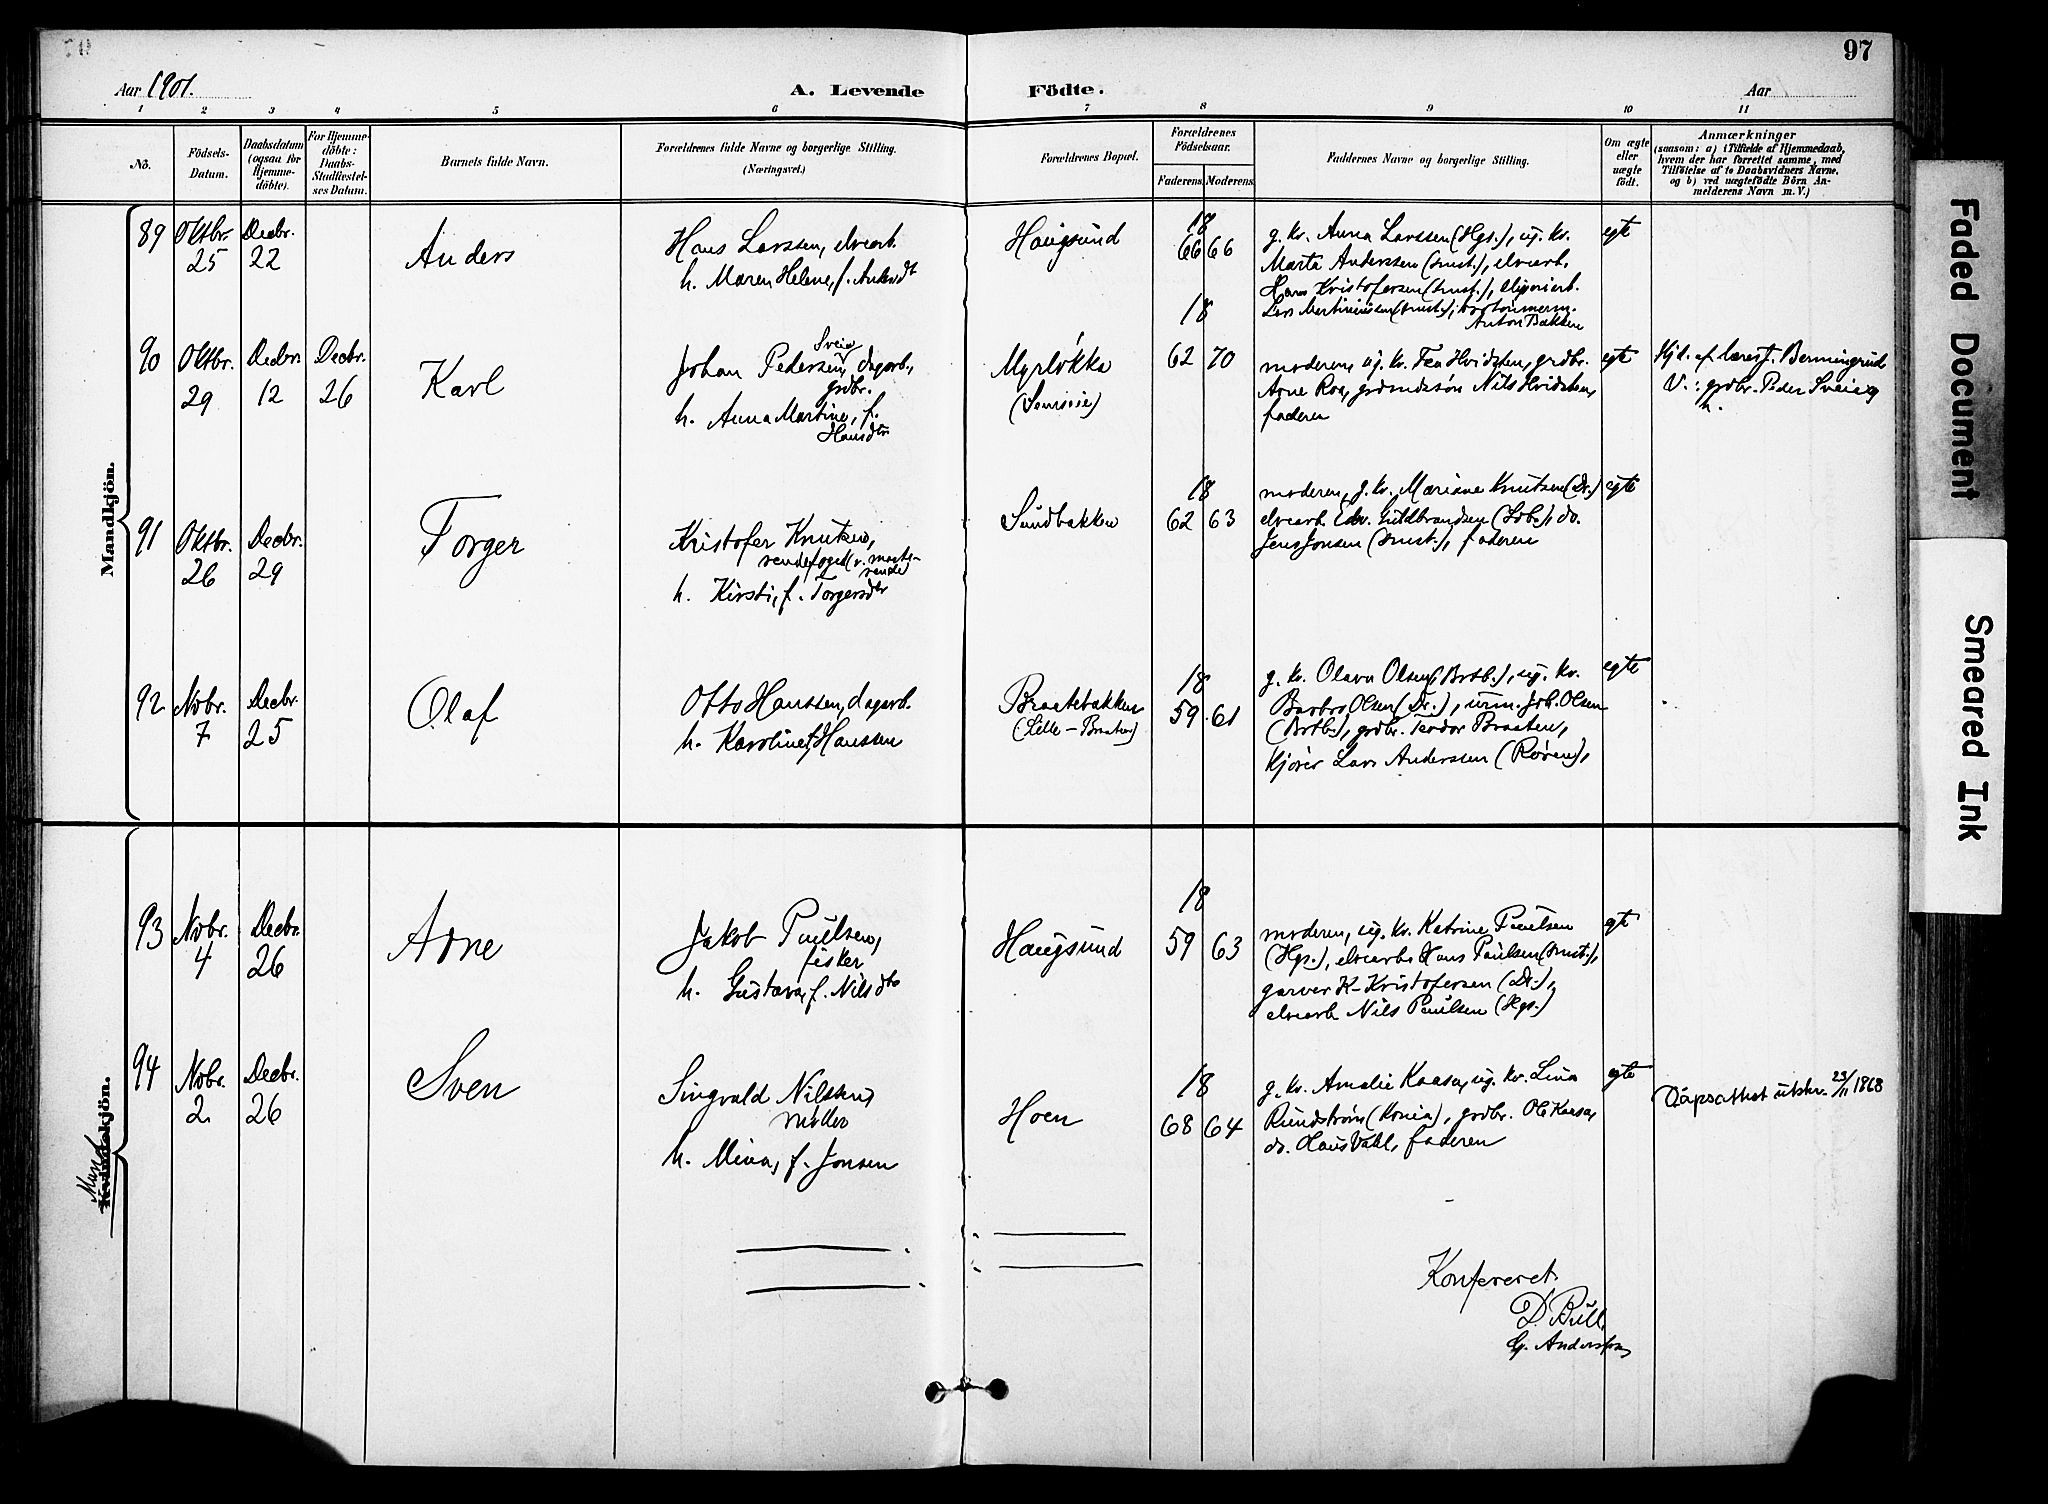 97
Aar 1901.
A. Levende Födte.
Aar
1 2 3 4 5 6 7 8 9 10 11
No.
Födsels-
Datum.
Daabsdatum
(ogsaa for
Hjemme-
döbte).
For Hjemme-
döbte:
Daabs-
Stadfæstel-
ses Datum.
Barnets fulde Navn.
Forældrenes fulde Navne og borgerlige Stilling.
(Næringsvei.)
Forældrenes Bopæl.
Forældrenes
Födselsaar.
Faderens. Moderens.
Faddernes Navne og borgerlige Stilling.
Om ægte
eller
uægte
födt.
Anmærkninger
(saasom: a) i Tilfælde af Hjemmedaab,
hvem der har forrettet samme, med
Tilföielse af to Daabsvidners Navne,
og b) ved uægtefödte Börn An-
melderens Navn m. V.)
Mandkjön.
89
Oktbr.
25
Decbr.
22
Anders
Hans Larssen, elvearb.
h. Maren Helene, f. Andersdt
Haugsund
18
66 66
g. kv. Anna Larssen (Hgs.), ug. kv.
Marta Anderssen (smst.), elvearb.
Hans Kristofersen (smst.),
egte
90
Oktbr.
29
Decbr.
12
Decbr.
26
Karl
Johan Pedersen Sveia, dagarb.,
grdbr.
h. Anna Martine, f.
Hansdtr
Myrløkka
18
62 70
moderen, ug. kv. Tea Hvidsten, grdbr.
Arne Roa, grdmdssøn Nils Hvidsten,
faderen
egte
Hjd. af lærerf. Bermingrud
V.: grdbr. Peder Sveia og
h.
91
Oktbr.
26
Decbr.
29
Torger
Kristofer Knutsen,
h. Kirsti, f. Torgersdtr
Sundbakken
18
62 63
moderen, g. kv. Mariane Knutsen (Dr.)
elvearb. Edv. Guldbrandsen (Sdb.), do.
Jens Jonsen (smst.), faderen
egte
92
Nobr.
7
Decbr.
25
Olaf
Otto Hanssen, dagarb.
h. Karoline f. Hanssen
Braatebakken
(Lille-Braaten)
18
59 61
g. kv. Olava Olsen (Brtb.), ug. kv.
Barbro Olsen (Dr.), urm. Joh. Olsen
(Brtb.), grdbr. Teodor Braaten,
kjører Lars Anderssen (Røren),
egte
Mand
Kvindekjön.
93
Nobr.
4
Decbr.
26
Arne
Jakob Paulsen,
fisker
h. Gustava, f. Nilsdtr
Haugsund
18
59 63
moderen, ug. kv. Katrine Paulsen
(Hgs.), elvearb. Hans Paulsen (smst.),
garver K. Kristofersen (Dr.),
elvearb. Nils Paulsen (Hgs.)
egte
94
Nobr.
2.
Decbr.
26
Sven
Singvald Nilssen,
møller
h. Mina, f. Jonsen
Hoen
18
68 64
g. kv. Amalie Kaasa, ug. kv. Lina
Rundstrøm (Kr.nia), grdbr. Ole Kaasa,
do. Hans Dahl, faderen
egte
Dåpsattest utskr. 23/11 1968
Konfereret
D. Bull
G. Anderssen
Faded Document
Smeared Ink